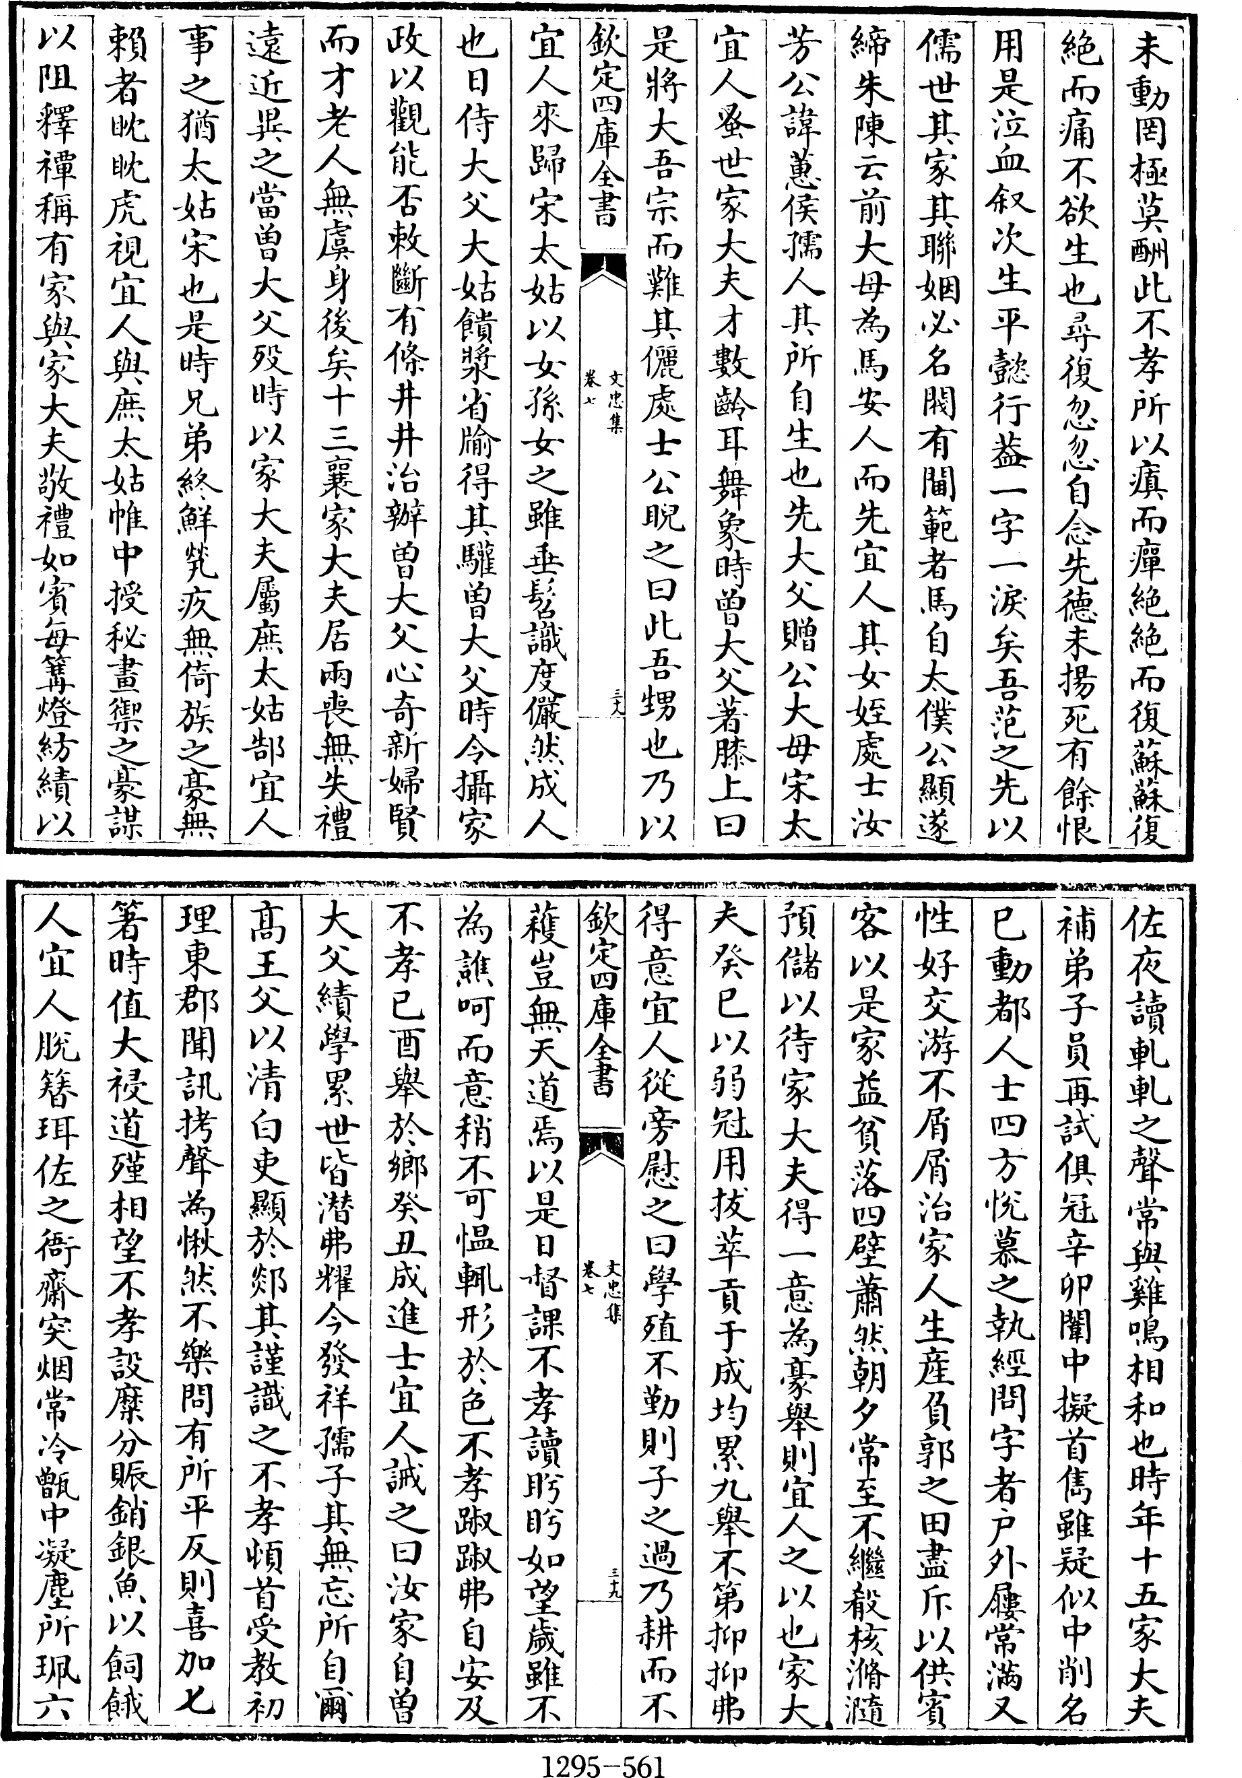 未動罔極莫酬此不孝所以瘨而癉絶絶而復蘇蘇復
絶而痛不欲生也尋復忽忽自念先德未揚死有餘恨
用是泣血叙次生平懿行葢一字一淚矣吾范之先以
儒世其家其聯姻必名閥有閫範者馬自太僕公顯遂
締朱陳云前大母為馬安人而先宜人其女姪處士汝
芳公諱蕙侯孺人其所自生也先大父贈公大母宋太
宜人蚤世家大夫才數齡耳舞象時曽大父著膝上曰
是將大吾宗而難其儷處士公睨之曰此吾甥也乃以
欽定四庫全書
文忠集
卷七
三八
宜人來歸宋太姑以女孫女之雖垂髫識度儼然成人
也日侍大父大姑饋漿省牏得其驩曽大父時令攝家
政以觀能否敕斷有條井井治辦曽大父心奇新婦賢
而才老人無虞身後矣十三襄家大夫居兩喪無失禮
遠近異之當曽大父殁時以家大夫屬庶太姑郜宜人
事之猶太姑宋也是時兄弟終鮮煢疚無倚族之豪無
賴者眈眈虎視宜人與庶太姑帷中授秘畫禦之豪謀
以阻釋禫稱有家與家大夫敬禮如賓每篝燈紡績以
佐夜讀軋軋之聲常與雞鳴相和也時年十五家大夫
補弟子員再試俱冠辛卯闈中擬首雋雖疑似中削名
已動都人士四方悦慕之執經問字者戸外屨常滿又
性好交游不屑屑治家人生産負郭之田盡斥以供賓
客以是家益貧落四壁蕭然朝夕常至不繼殽核滫瀡
預儲以待家大夫得一意為豪舉則宜人之以也家大
夫癸巳以弱冠用拔萃貢于成均累九舉不第抑抑弗
得意宜人從旁慰之曰學殖不勤則子之過乃耕而不
欽定四庫全書
文忠集
卷七
三九
蒦豈無天道焉以是日督課不孝讀盻盻如望歲雖不
為譙呵而意稍不可愠輒形於色不孝踧踧弗自安及
不孝已酉舉於鄉癸丑成進士宜人誡之曰汝家自曽
大父績學累世皆潜弗耀今發祥孺子其無忘所自爾
髙王父以清白吏顯於郯其謹識之不孝頓首受教初
理東郡聞訊拷聲為愀然不樂問有所平反則喜加匕
箸時值大祲道殣相望不孝設糜分賑銷銀魚以飼餓
人宜人脱簪珥佐之衙齋突烟常冷甑中凝塵所珮六
1295-561